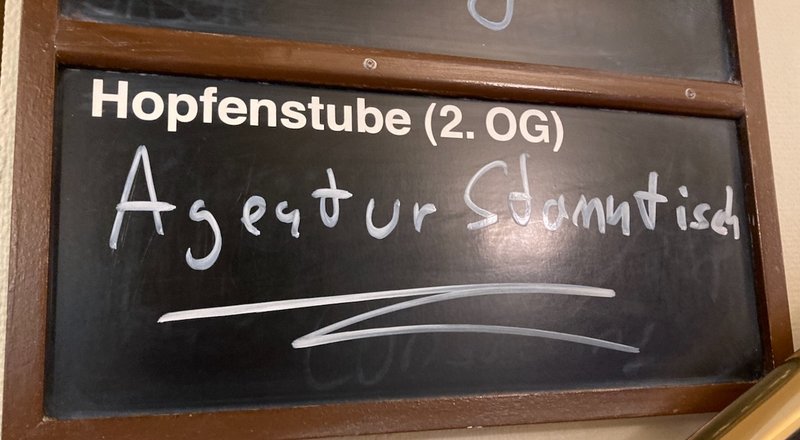 Hopfenstube (2. OG)
Agentur Stammtisch